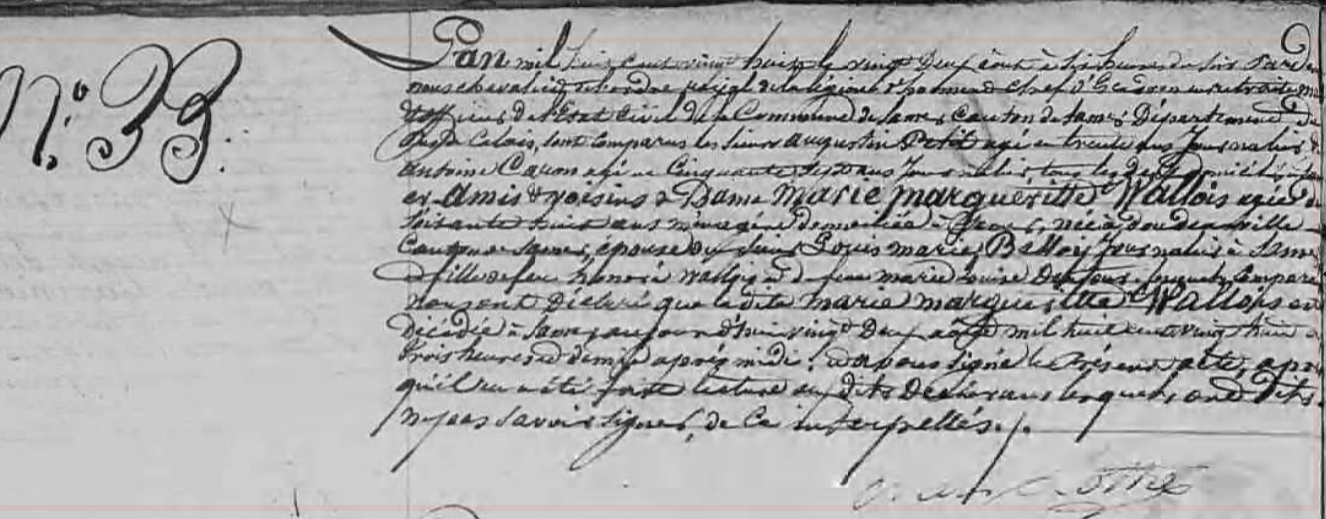 N.° 33.
L'an mil huit cent vingt huit le vingt deux aout à six heures du soir Par de
nous chevalier de l'ordre royal de la légion d'honneur chef d'Escadron en retraite
officier de l'Etat Civil de la Commune de Samer, Canton de Samer, Département du
Pas de Calais, sont comparus les sieurs augustin Petit agé de trente ans Journalier &
antoine Cauon agé de Cinquante sept ans Journalier tous les deux domiciliés
et amis & voisins de Dame Marie Marguéritte Wallois agée de
soixante huit ans ménagère demeurée à Samer, née à doudeauville
Canton de Samer, épouse du sieur Louis marie Balloy Journalier à Samer
fille de feu honoré Wallois & de feue marie Louise Dufour, lesquels Compara
nous ont Déclaré que ladite Marie Margueritte Wallois est
décédée à Samer, aujourd'hui vingt Deux aout mil huit cent vingt huit à
trois heures & demie après midi; & avons signé le Présent acte, après
qu'il en a été faite lecture aux dits Déclarans lesquels ont Dits
ne pas savoir signer, de Ce interpellés./.